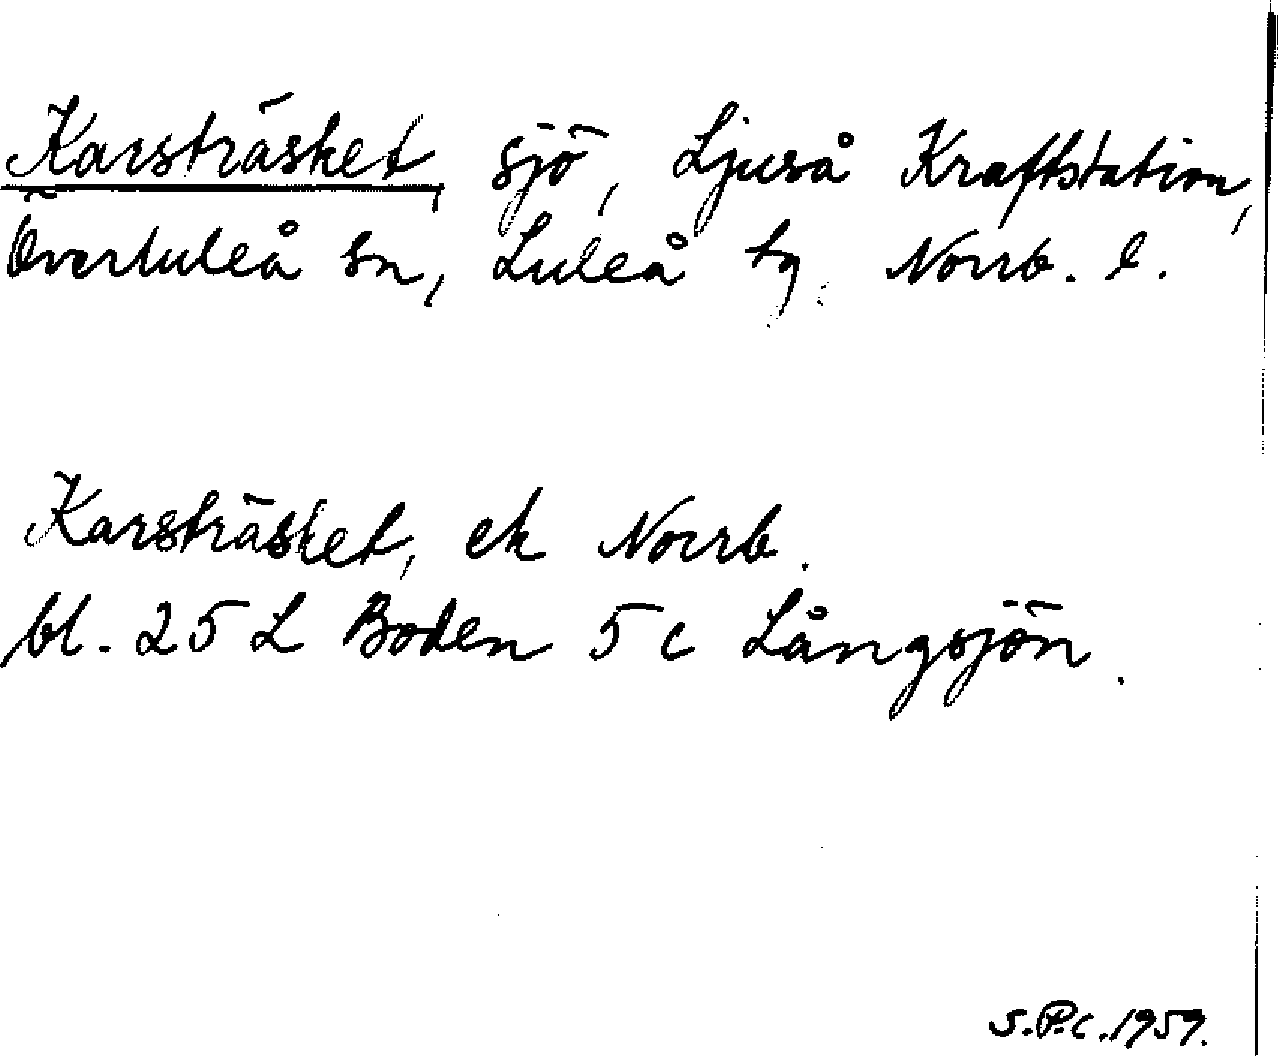 Karsträsket, sjö, Ljuså Kraftstation,
Överluleå sn, Luleå tg. Norrb. l.
Karsträsket, ek Norrb.
bl. 25 L Boden 5 c Långsjön.
S.P.C. 1959.